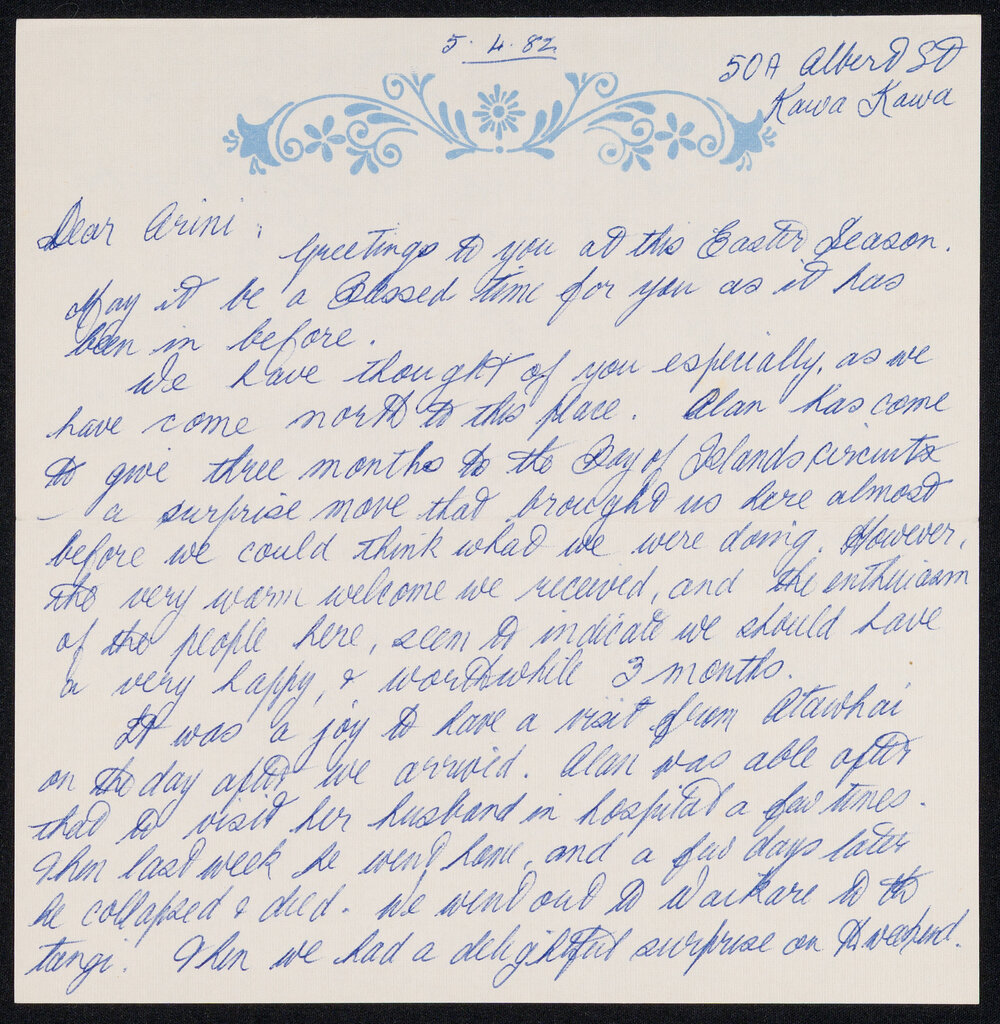 5. 4. 82
50A Albert St
Kawa Kawa
Dear Arini,
Greetings to you at this Easter Season.
May it be a Blessed time for you as it has
been in before.
We have thought of you especially, as we
have come north to this place. Alan has come
to give three months to the Bay of Islands circuits
- a surprise move that brought us here almost
before we could think what we were doing. However,
the very warm welcome we received, and the enthusiasm
of the people here, seem to indicate we should have
a very happy, & worthwhile 3 months.
It was a joy to have a visit from Atawhai
on the day after we arrived. Alan was able after
that to visit her husband in hospital a few times.
Then last week he went home, and a few days later
he collapsed & died. We went out to Waikare to the
tangi. Then we had a delightful surprise on the weekend.